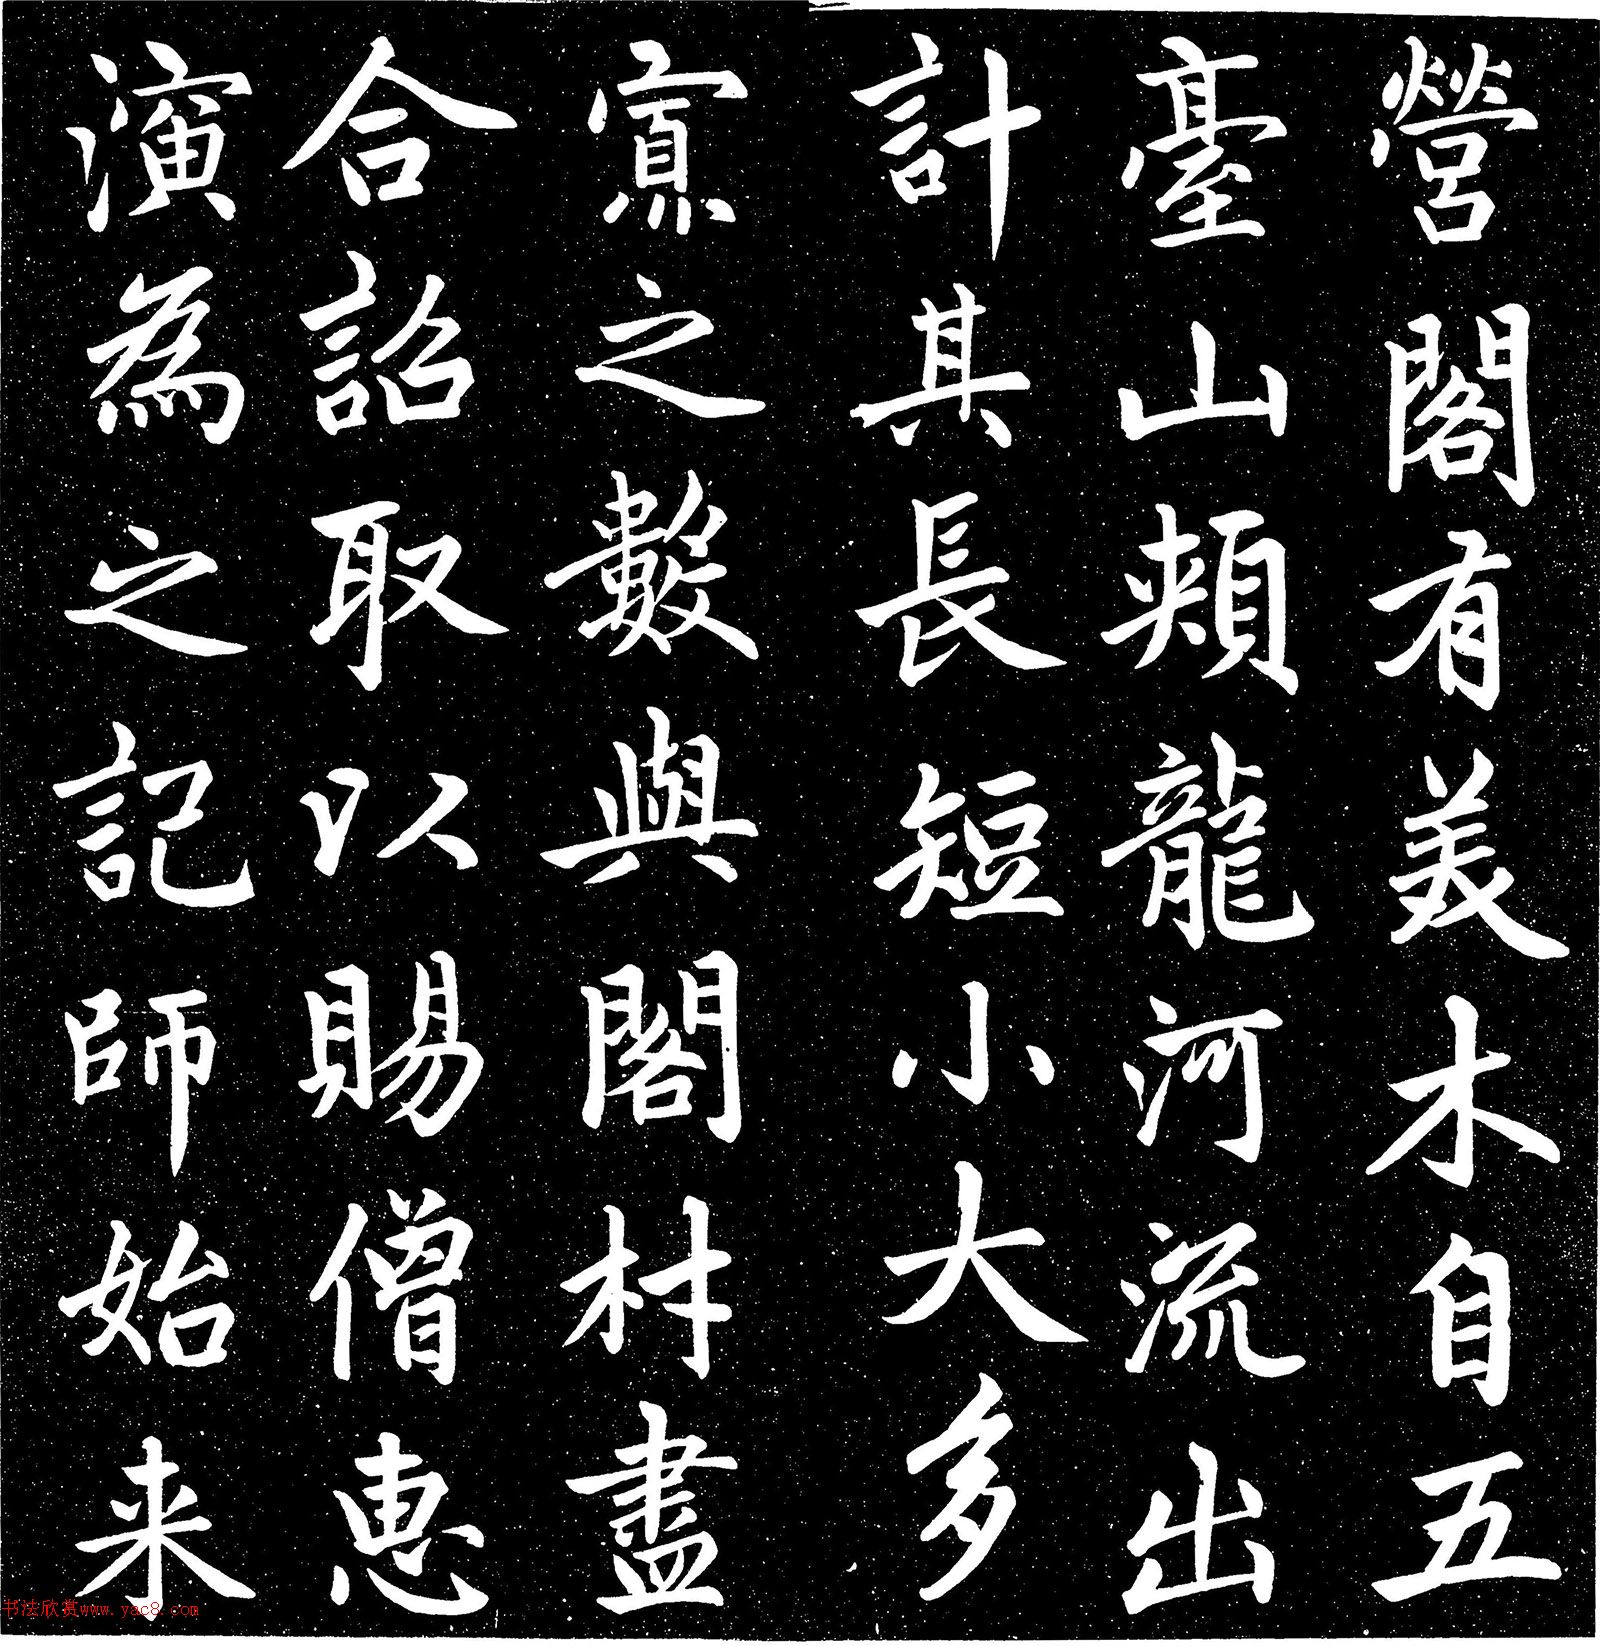 營閣有美木自五
臺山頰龍河流出
計其長短小大多
寡之數與閣材盡
合詔取以賜僧惠
演為之記師始来
书法欣赏www.yac8.com